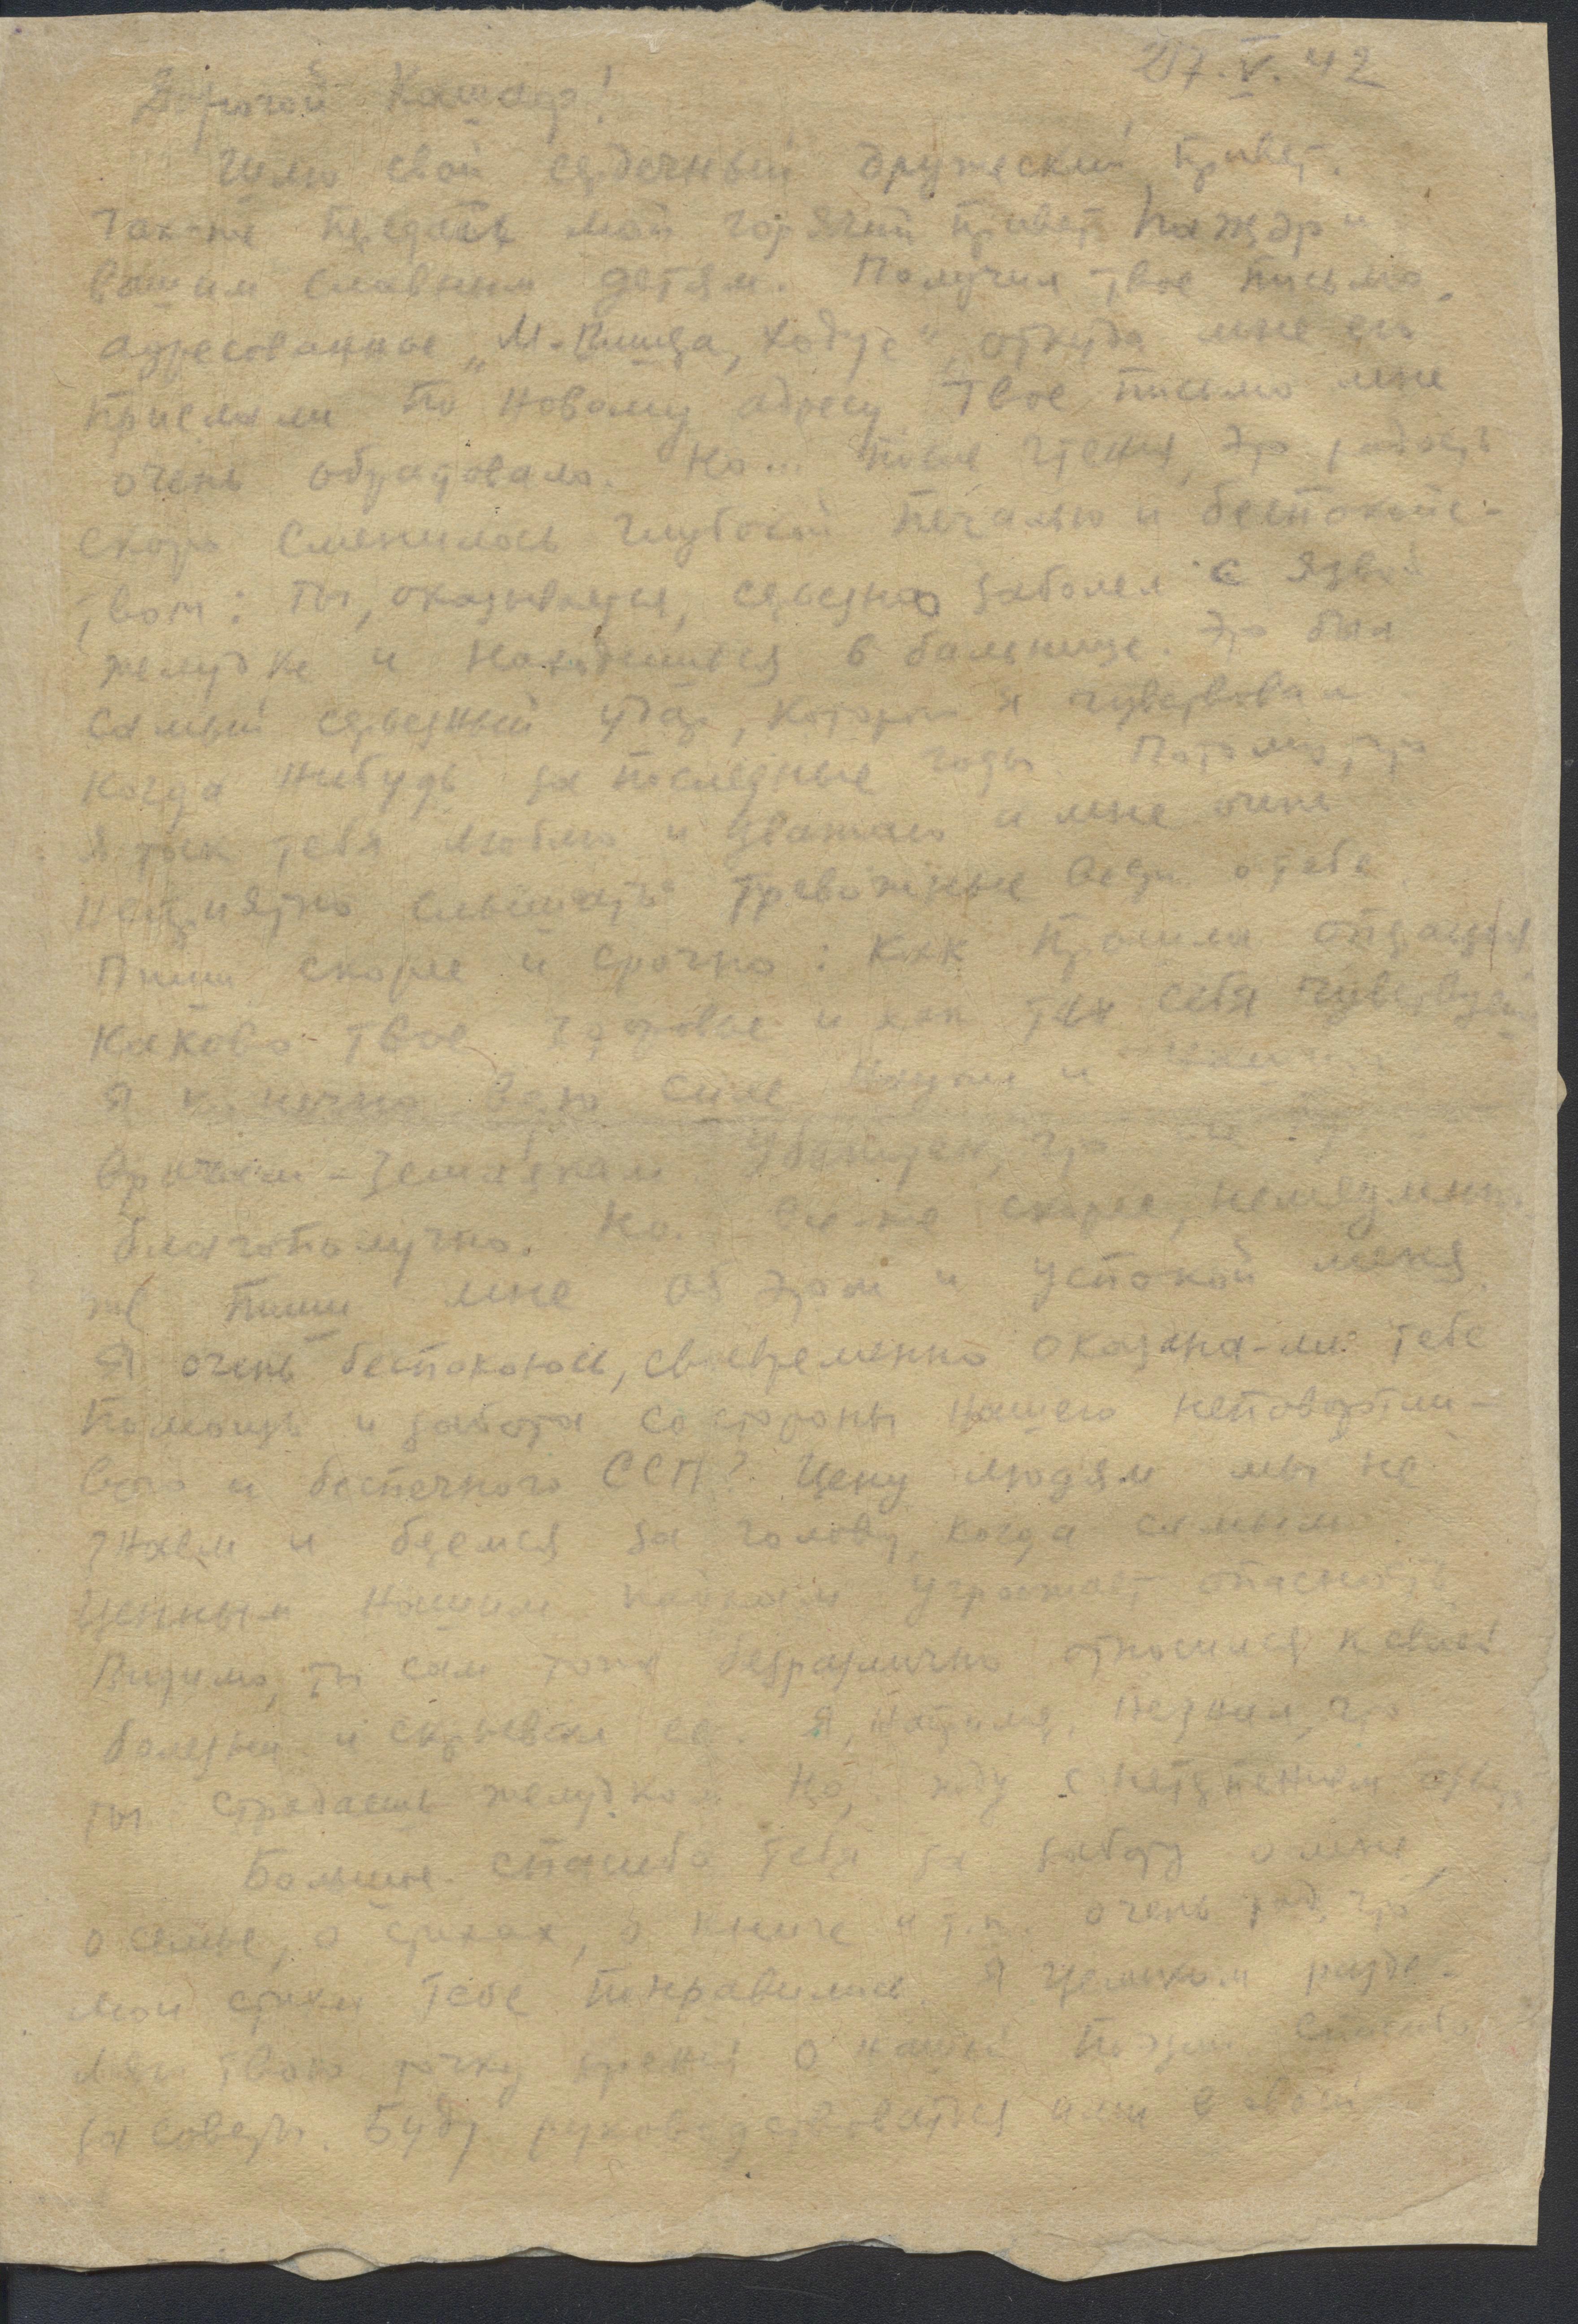 27.V.42
Дорогой Кашаф!
Шлю свой сердечный дружеский привет.
Также передать мой горячий привет и
вашим славным детям. Получил твое письмо,
адресованное „М-Вишера, ходу", откуда мне его
прислали по новому адресу. Твое письмо мне
очень обрадовало. Но... после чтения, эта радость
скоро сменилась глубокой печалью и беспокойс-
твом: ты, оказывается, серьезно заболел с язвой
желудке и находишься в больнице. Это был
самый серьезный удар, который я чувствовал
когда нибудь за последные годы. Потому, что
я так тебя люблю и уважаю и мне очень
неприятно слышать тревожные вести о тебе.
Пиши скорее и срочно: Как прошла операция
Каково твое здоровье и как там себя чувствуешь
Я конечно верю силе науки и
врачам-землякам. что
благополучно. Но.. все-же скорее, немедленно
же пиши мне об этом и успокой меня.
Я очень беспокоюсь, своевременно оказана-ли тебе
помощь и забота со стороны нашего неповоротли-
вого и беспечного ССП? Цену людям мы не
знаем и беремся за голову, когда самым
ценным нашим угрожает опасность
Видимо, ты сам тоже безразлично относился к своей
болезни и скрывал ее. Я, например, незнал, что
ты страдаешь желудком. Но, жду с нетерпением
Большое спасибо тебе за заботу о мне,
о семье, о стихах, о книге и т.п. очень рад, что
мои стихи тебе понравились. Я целиком разде-
ляю твою точку зрения о нашей поэзии. Спасибо
за советы. Буду руководствоваться ими в своей